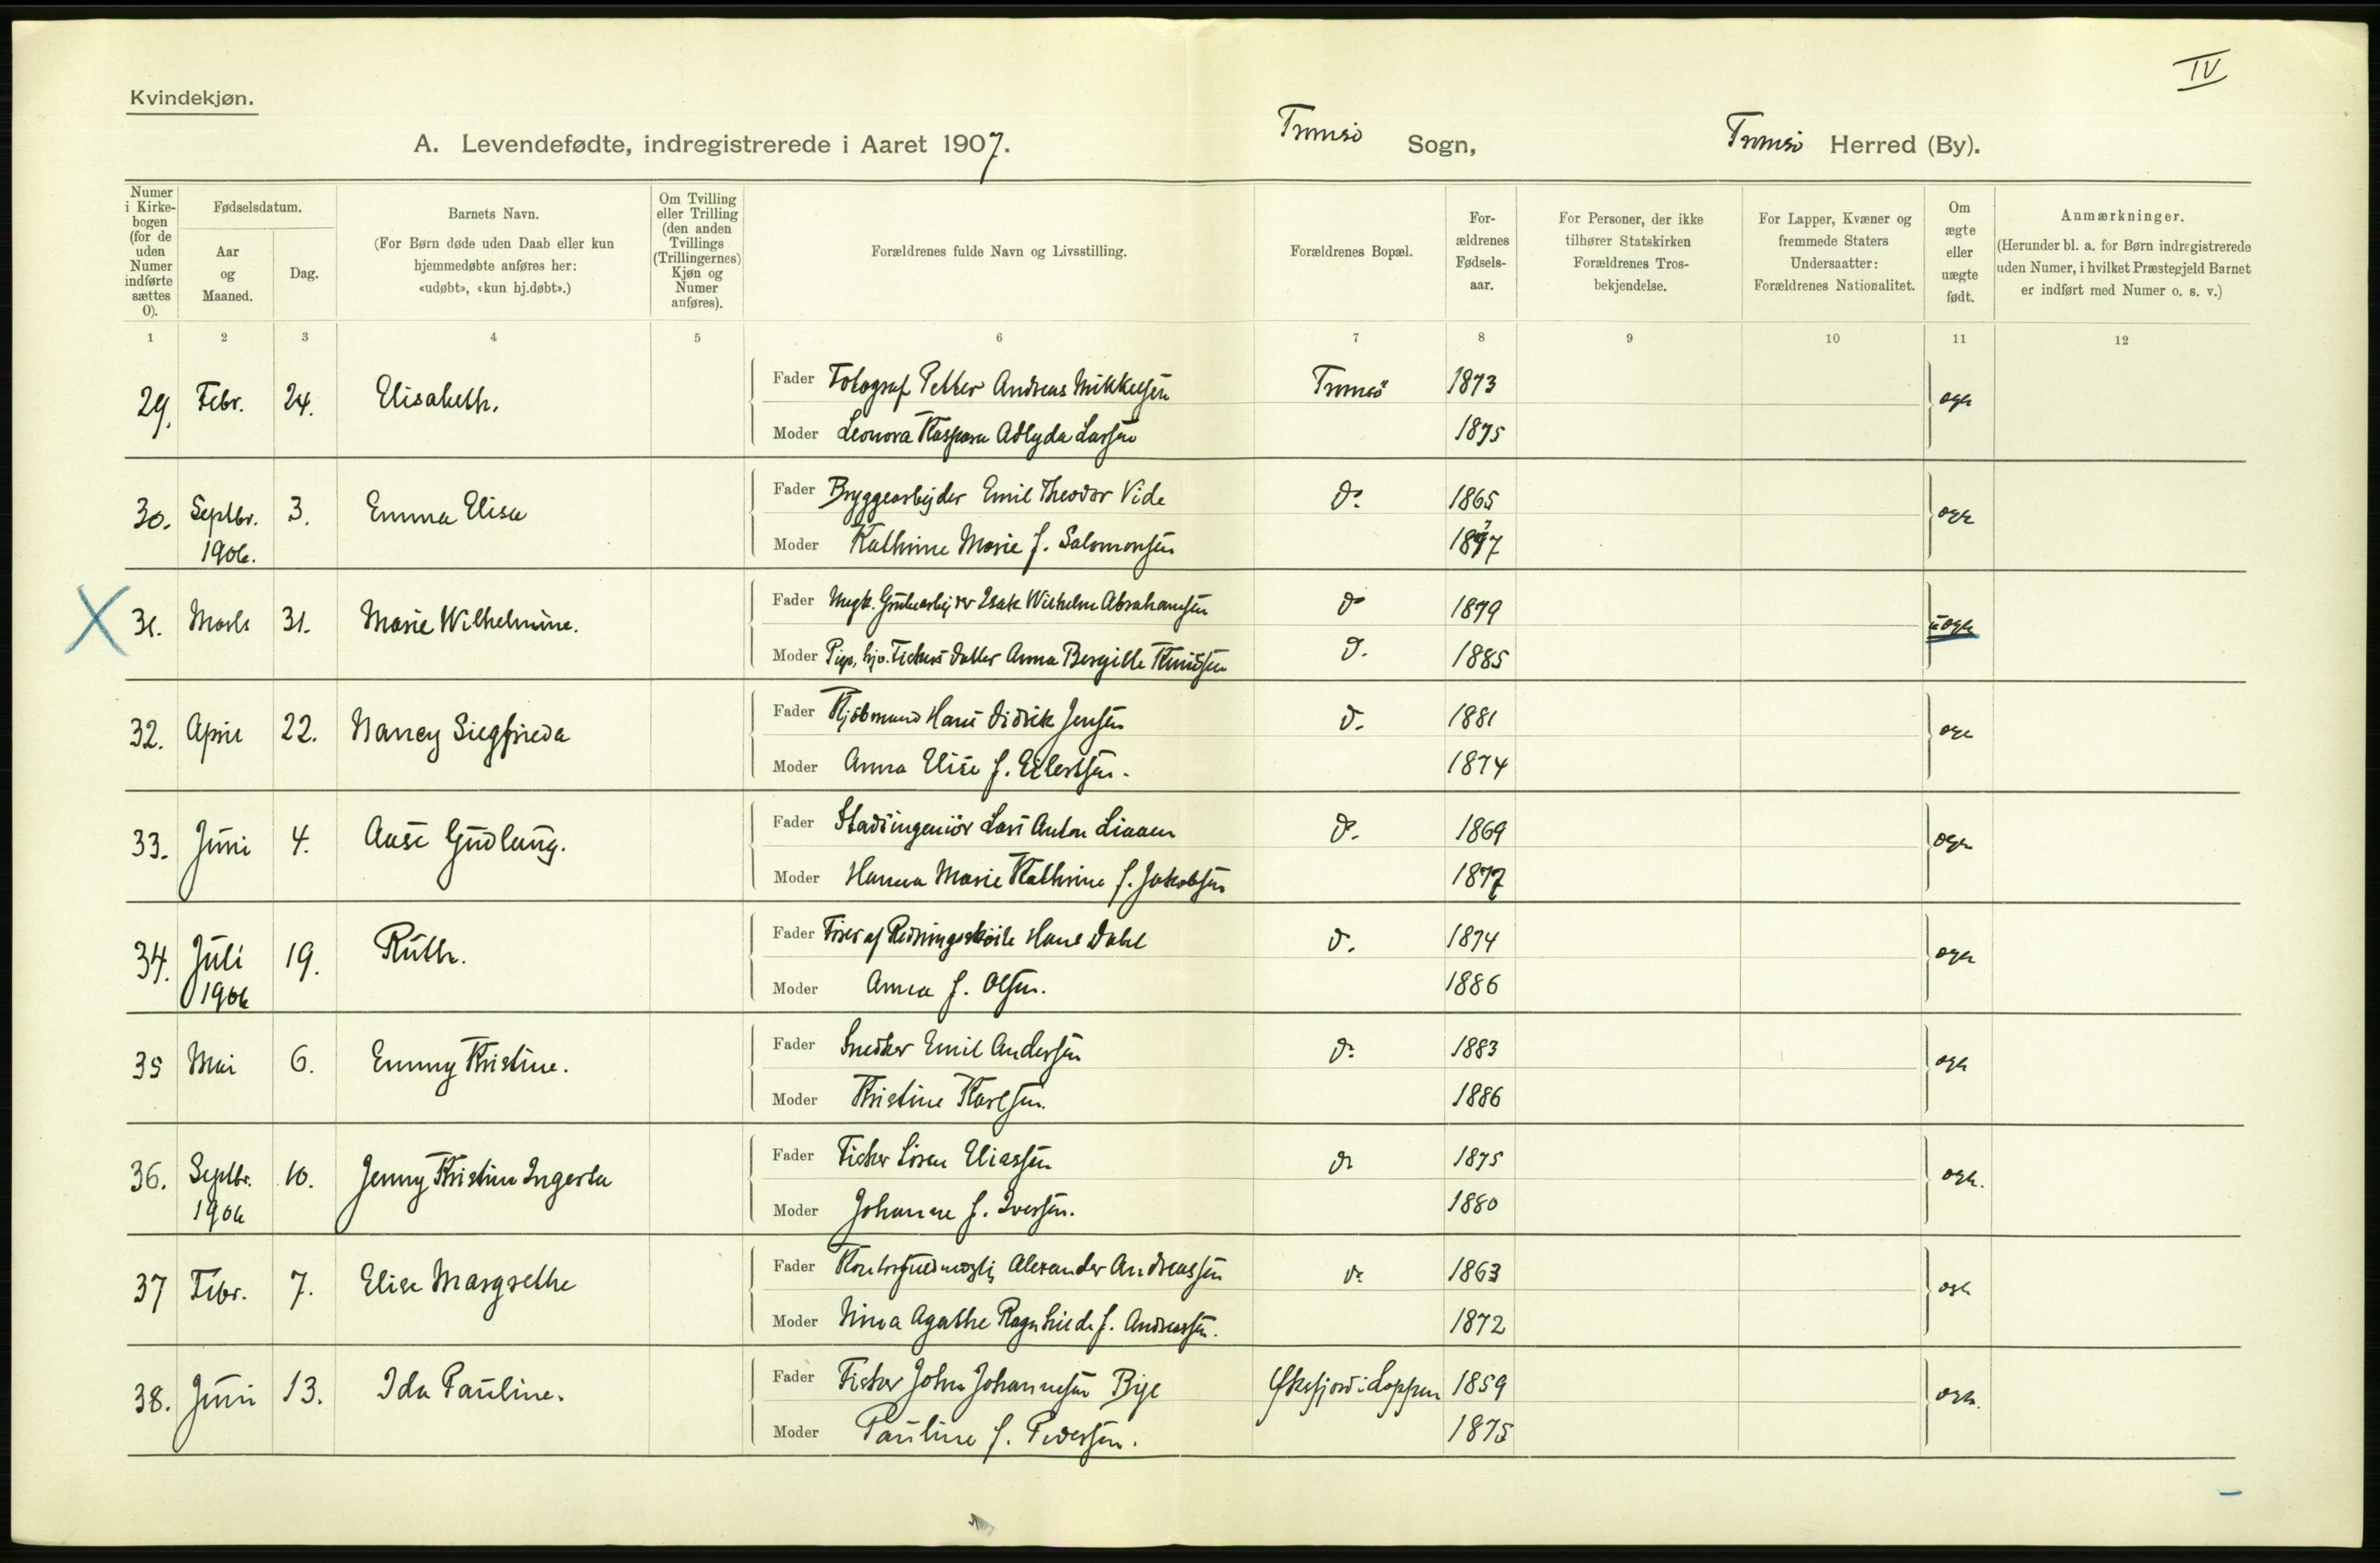 IV
Kvindekjøn.
A. Levendefødte, indregistrerede i Aaret 1907. Tromsö Sogn, Tromsö Herred (By).
Numer i Kirkebogen (for de uden Numer indførte sættes 0).
Fødselsdatum.
Aar og Maaned.
Dag.
Barnets Navn.
(For Børn døde uden Daab eller kun hjemmedøbte anføres her: «udøbt», «kun hj.døbt».)
Om Tvilling eller Trilling (den anden Tvillings (Trillingernes) Kjøn og Numer anføres).
Forældrenes fulde Navn og Livsstilling.
Forældrenes Bopæl.
Forældrenes Fødselsaar.
For Personer, der ikke tilhører Statskirken Forældrenes Trosbekjendelse.
For Lapper, Kvæner og fremmede Staters Undersaatter: Forældrenes Nationalitet.
Om ægte eller uægte født.
Anmærkninger.
(Herunder bl. a. for Børn indregistrerede uden Numer, i hvilket Præstegjeld Barnet er indført med Numer o. s. v.)
1 2 3 4 5 6 7 8 9 10 11 12
29. Febr. 24. Elisabeth. Fader Fotograf Petter Andreas Mikkelsen Tromsö 1873 ægte
Moder Leonora Kaspara Adlyda Larsen 1875
30. Septbr. 1906. 3. Emma Elisa Fader Bryggearbejder Emil Theodor Vide do 1865 ægte
Moder Kathrine Marie f. Salomonsen
X 31. Marts 31. Marie Wilhelmine. Fader Ungk. Grubearbejder Isak Wilhelm Abrahamsen do 1879 uægte
Moder Pige, hjv. Fiskers datter Anna Bergitte Knudsen do. 1885
32. April 22. Nancy Siegfrieda Fader Kjöbmand Hans Didrik Jensen do. 1881 ægte
Moder Anna Elise f. Eilertsen. 1874
33. Juni 4. Aase Gudlaug. Fader Stadsingeniör Lars Anton Liaaen do. 1869 ægte
Moder Hanna Marie Kathrine f. Jakobsen 1877
34. Juli 1906 19. Ruth. Fader Förer af Redningsskøite Hans Dahl do. 1874 ægte
Moder Anna f. Olsen. 1886
35 Mai 6. Emmy Kristine. Fader Snedker Emil Andersen do. 1883 ægte
Moder Kristine Karlsen. 1886
36. Septbr. 1906 10. Jenny Kristine Ingerta Fader Fisker Sören Eliassen do 1875 ægte.
Moder Johanne f. Iversen. 1880
37 Febr. 7. Elise Margrethe Fader Kontorfuldmægtig Alexander Andreassen do 1863 ægte
Moder Nina Agathe Ragnhilda f. Andreassen. 1872
38. Juni 13. Ida Pauline. Fader Fisker John Johannesen Øksfjord i Loppen 1859 ægte.
Moder Pauline f. Pedersen. 1875